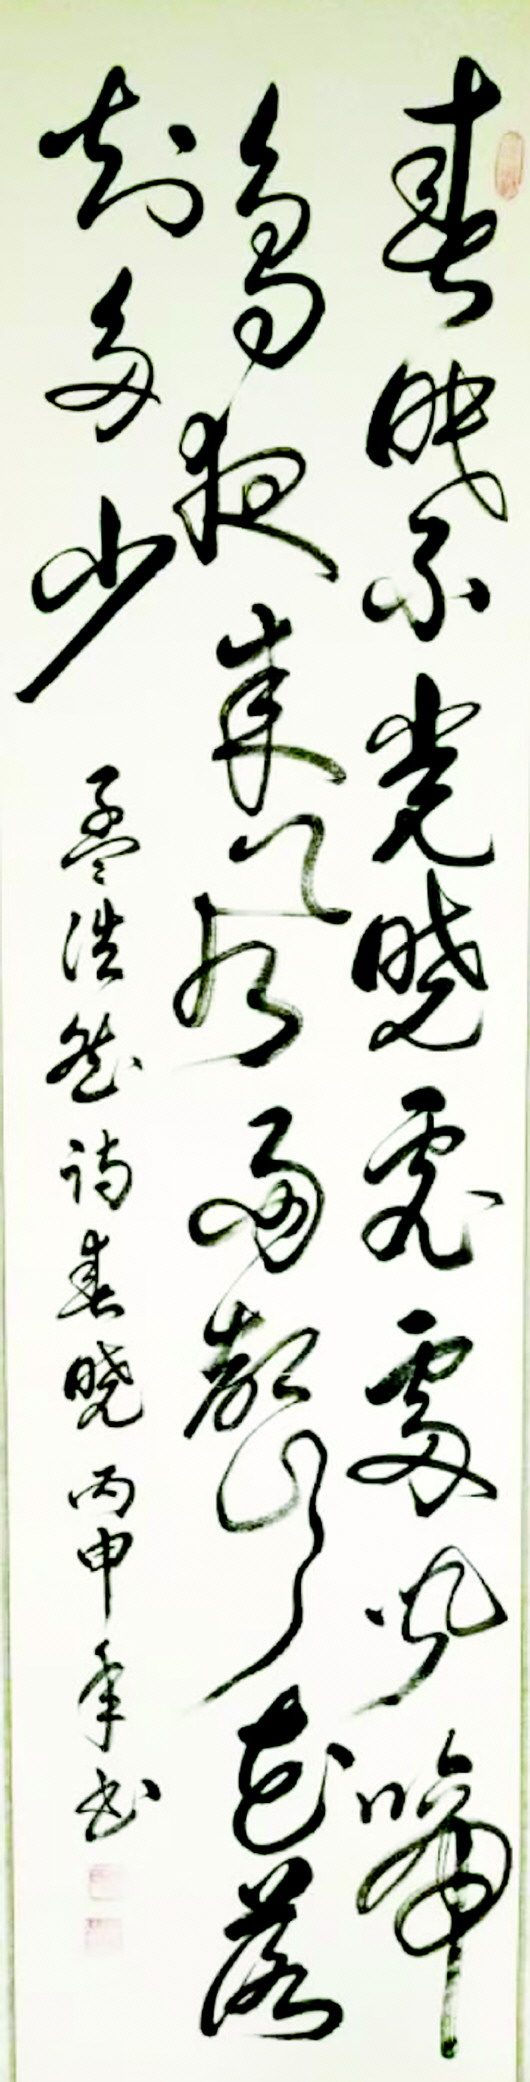 春眠不觉晓處處闻啼
鸟夜来风雨声花落
知多少
孟浩然诗春晓丙申年书